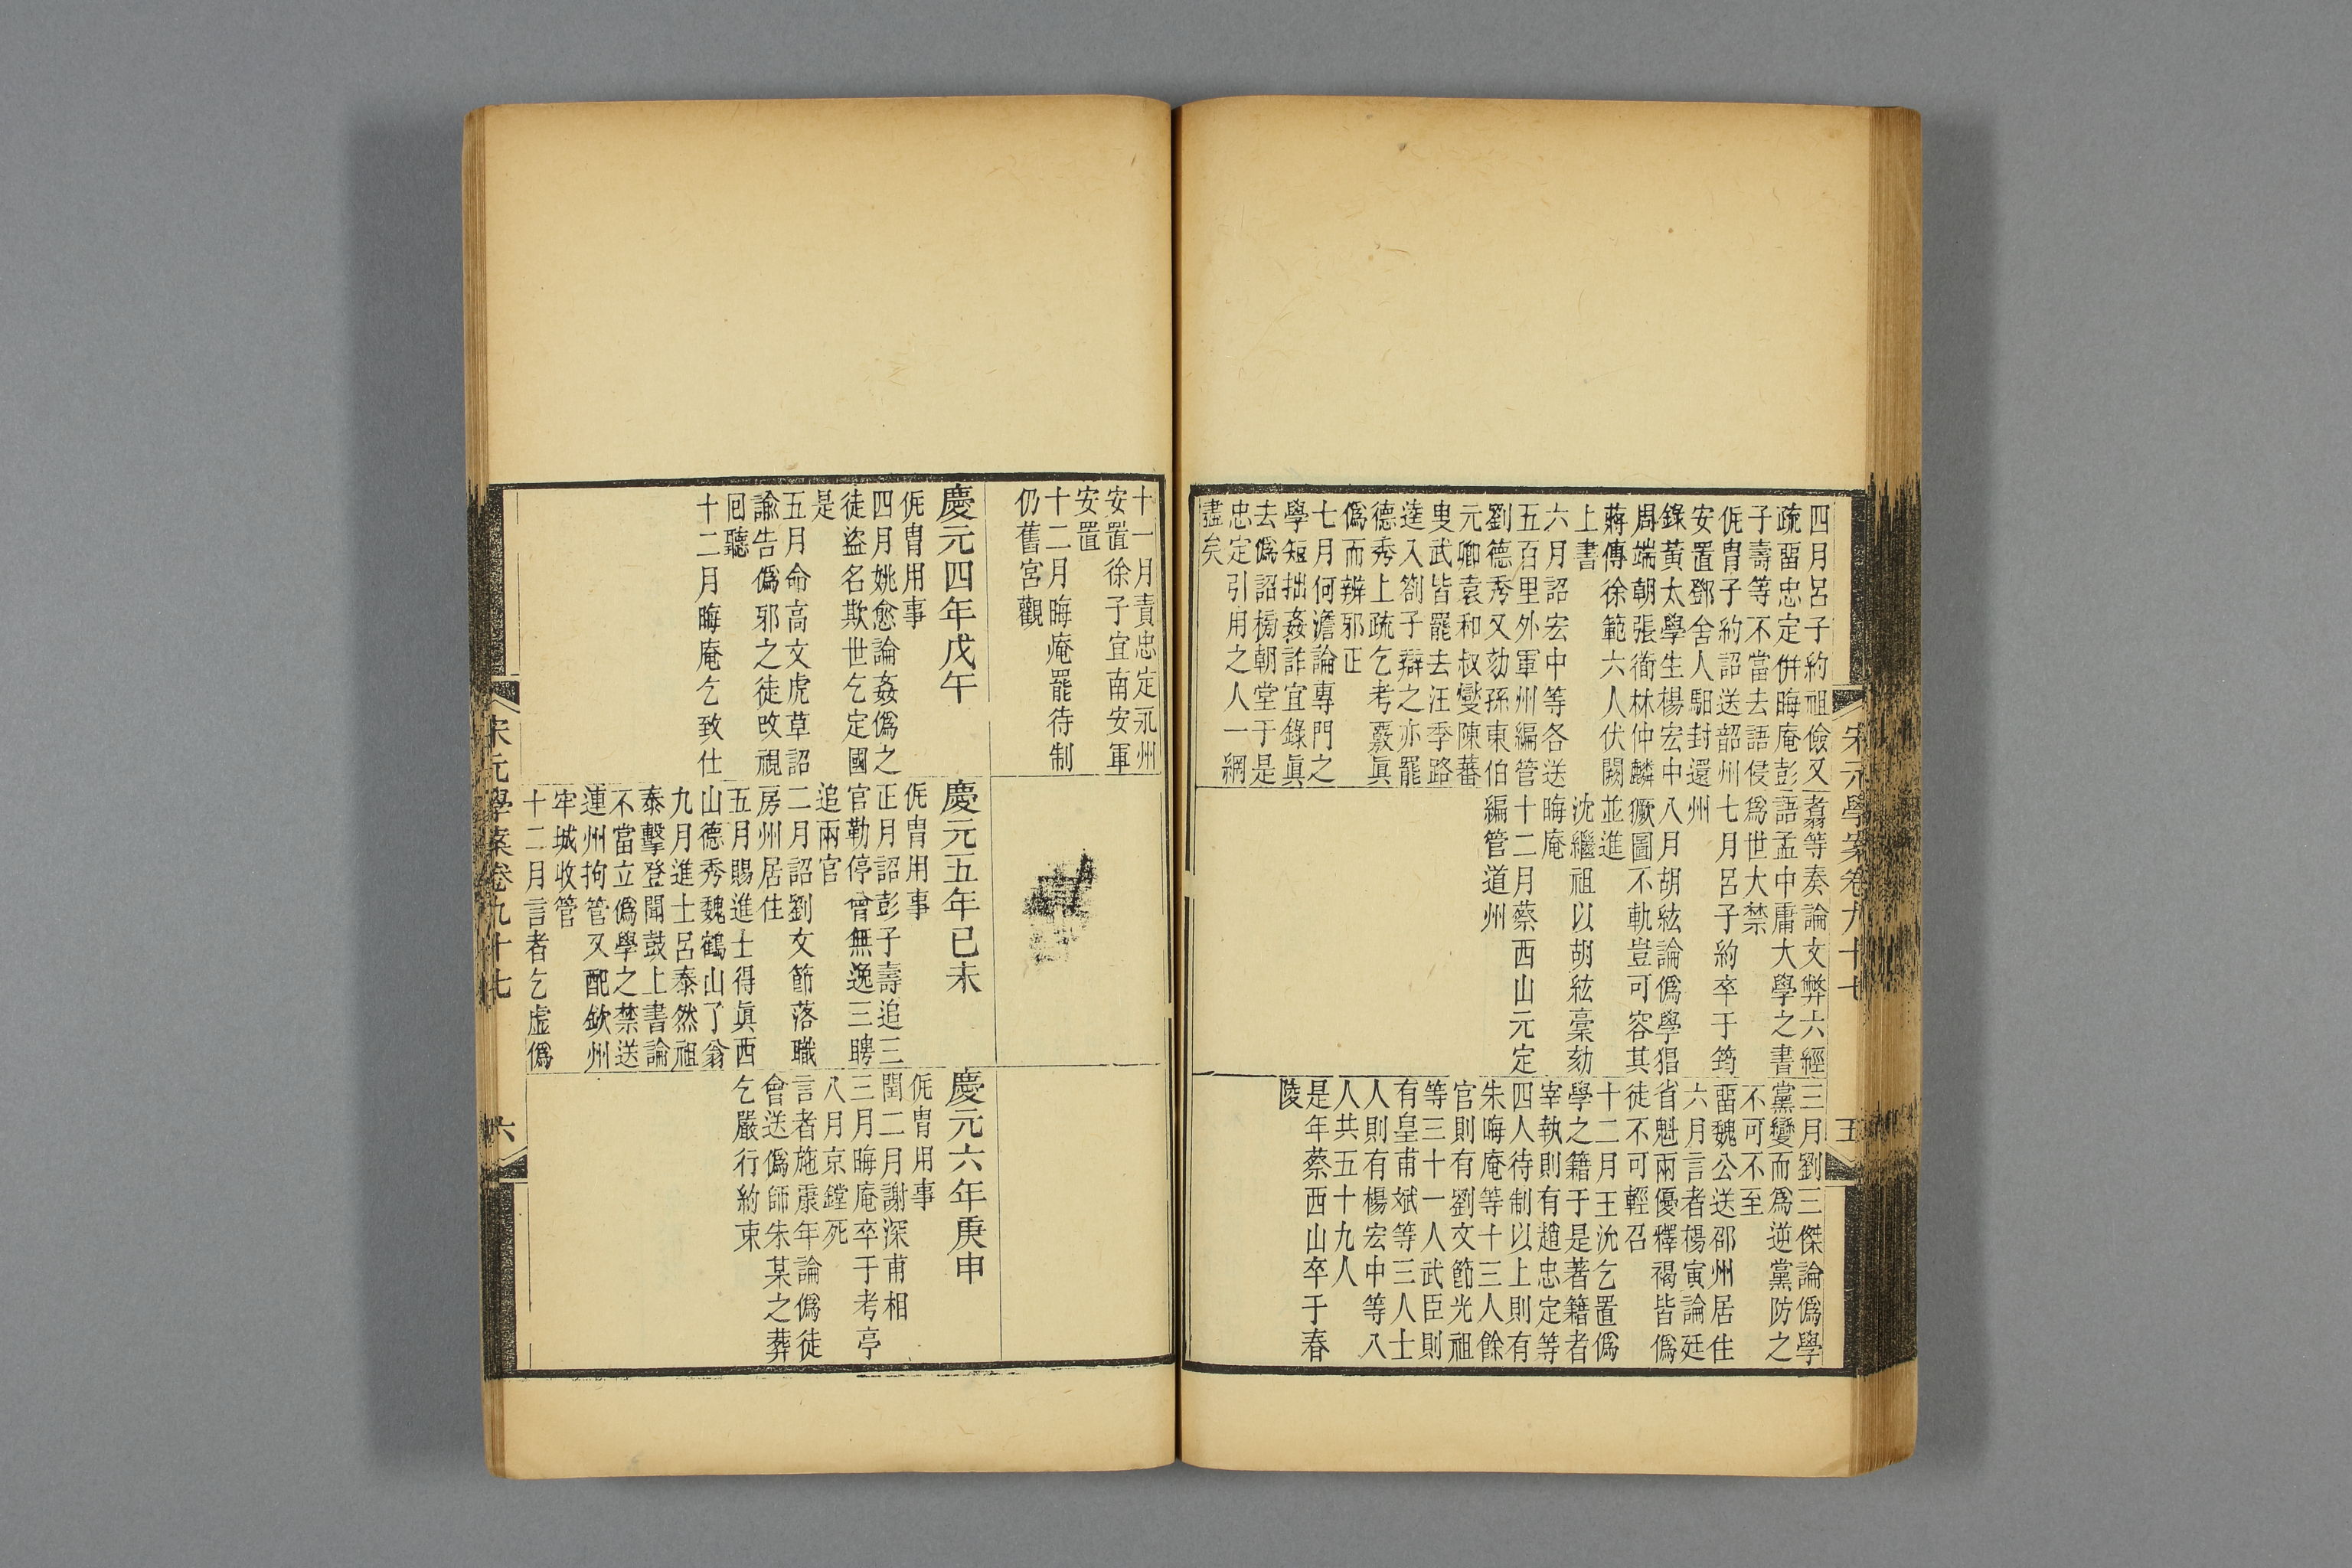 四月呂子約祖儉又
疏畱忠定併晦庵彭
子壽等不當去語侵
侂冑子約詔送韶州
安置鄧舍人馹封還
錄黃太學生楊宏中
周端朝張衟林仲麟
蔣傳徐範六人伏闕
上書
六月詔宏中等各送
五百里外軍州編管
劉德秀又劾孫東伯
元卿袁和叔燮陳蕃
叟武皆罷去汪季路
逵入劄子辯之亦罷
德秀上疏乞考覈眞
僞而辨邪正
七月何澹論專門之
學短拙姦詐宜錄眞
去僞詔榜朝堂于是
忠定引用之人一網
盡矣
十一月責忠定永州
安置徐子宜南安軍
安置
十二月晦庵罷待制
仍舊宮觀
翥等奏論文弊六經
語孟中庸大學之書
爲世大禁
七月呂子約卒于筠
州
八月胡紘論僞學猖
獗圖不軌豈可容其
並進
沈繼祖以胡紘稾劾
晦庵
十二月蔡西山元定
編管道州
三月劉三傑論僞學
黨變而爲逆黨防之
不可不至
畱魏公送邵州居住
六月言者楊寅論廷
省魁兩優釋褐皆僞
徒不可輕召
十二月王沇乞置僞
學之籍于是著籍者
宰執則有趙忠定等
四人待制以上則有
朱晦庵等十三人餘
官則有劉文節光祖
等三十一人武臣則
有皇甫斌等三人士
人則有楊宏中等八
人共五十九人
是年蔡西山卒于春
陵
宋元學案卷九十七
五
慶元四年戊午
侂冑用事
四月姚愈論姦僞之
徒盜名欺世乞定國
是
五月命高文虎草詔
諭告僞邪之徒改視
回聽
十二月晦庵乞致仕
慶元五年已未
侂冑用事
正月詔彭子壽追三
官勒停曾無逸三聘
追兩官
二月詔劉文節落職
房州居住
五月賜進士得眞西
山德秀魏鶴山了翁
九月進士呂泰然祖
泰擊登聞鼓上書論
不當立僞學之禁送
連州拘管又配欽州
牢城收管
十二月言者乞虛僞
慶元六年庚申
侂冑用事
閏二月謝深甫相
三月晦庵卒于考亭
八月京鏜死
言者施康年論僞徒
會送僞師朱某之葬
乞嚴行約束
宋元學案卷九十七
六